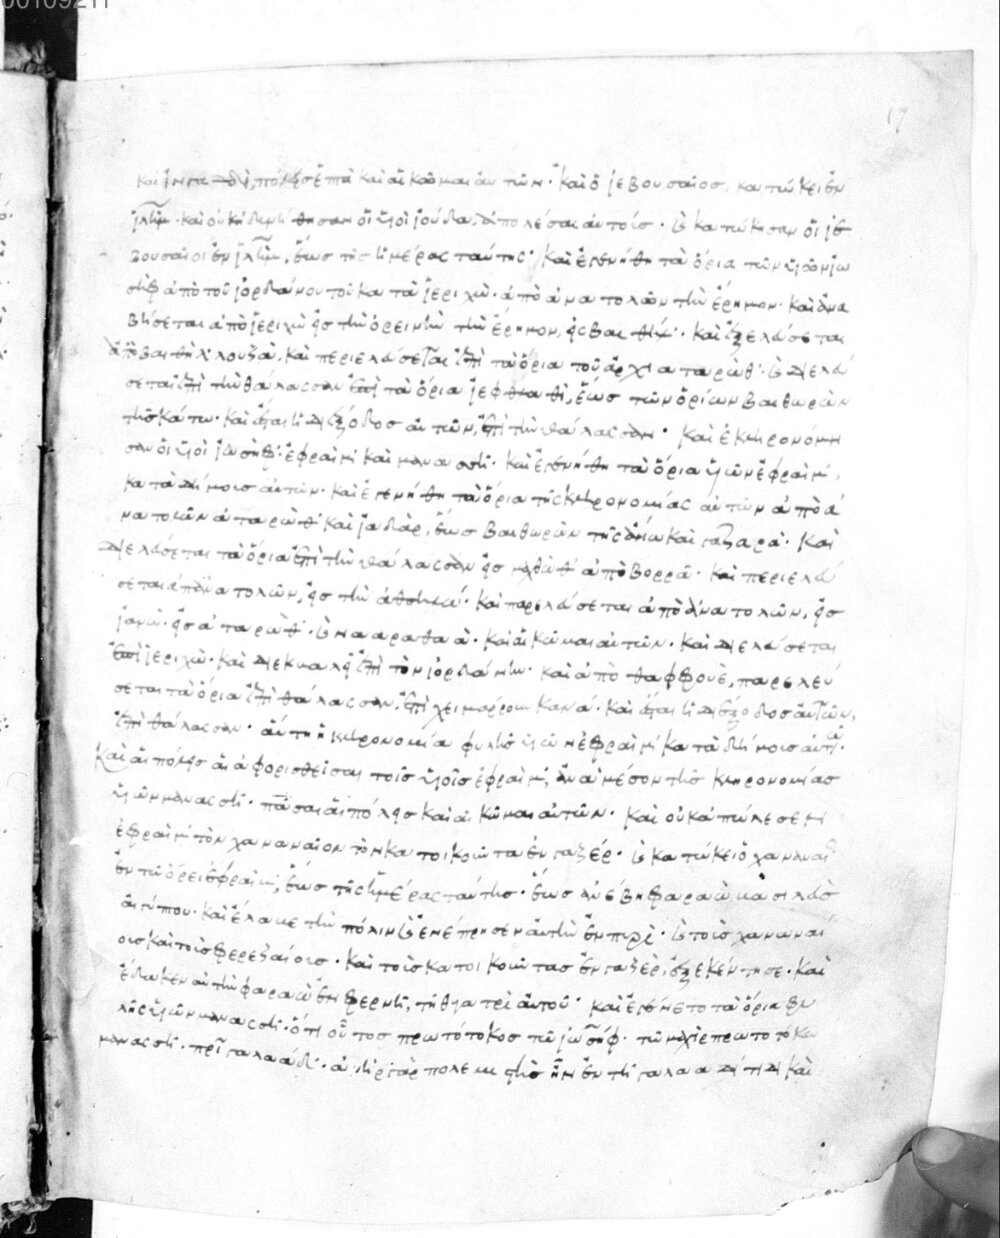 00109211
17
καὶ πόλεις ἑπτὰ καὶ αἱ κῶμαι αὐτῶν· καὶ ὁ ἰεβουσαῖος, κατώκει ἐν
ἰλὴμ· καὶ οὐκ ἠδυνήθησαν οἱ υἱοὶ ἰούδα, ἀπολέσαι αὐτούς· καὶ κατώκησαν οἱ ἰε
βουσαῖοι ἐν ἰλὴμ, ἕως τῆς ἡμέρας ταύτης· Καὶ ἐγενήθη τὰ ὅρια τῶν υἱῶν ἰω
σὴφ ἀπὸ τοῦ ἰορδάνου τοῦ κατὰ ἰεριχὼ· ἀπὸ ἀνατολῶν τὴν ἔρημον· καὶ ἀνα
βήσεται ἀπὸ ἰεριχὼ εἰς τὴν ὀρεινὴν τὴν ἔρημον, εἰς βαιθὴλ· καὶ ἐξελεύσεται
ἀπὸ βαιθὴλ λουζὰ, καὶ περιελεύσεται ἐπὶ τὰ ὅρια τοῦ ἀρχιαταρώθ· καὶ διελεύ
σεται ἐπὶ τὴν θάλασσαν ἐπὶ τὰ ὅρια ἰεφθαθὶ, ἕως τῶν ὁρίων βαιθωρὼν
τῆς κάτω· καὶ ἔσται ἡ διέξοδος αὐτῶν, ἐπὶ τὴν θάλασσαν· Καὶ ἐκληρονόμη
σαν οἱ υἱοὶ ἰωσὴφ· ἐφραῒμ καὶ μανασσῆ· καὶ ἐγενήθη τὰ ὅρια υἱῶν ἐφραῒμ,
κατὰ δήμους αὐτῶν· καὶ ἐγενήθη τὰ ὅρια τῆς κληρονομίας αὐτῶν ἀπὸ ἀ
νατολῶν ἀταρὼθ καὶ ἰαδὰρ, ἕως βαιθωρὼν τῆς ἄνω καὶ γαζαρά· Καὶ
διελεύσεται τὰ ὅρια ἐπὶ τὴν θάλασσαν εἰς μαχθὼθ ἀπὸ βορρᾶ· καὶ περιελεύ
σεται ἀπὸ ἀνατολῶν, εἰς τὴν· καὶ παρελεύσεται ἀπὸ ἀνατολῶν, εἰς
ἰανώ· εἰς ἀταρὼθ· καὶ νααραθαὰ· καὶ αἱ κῶμαι αὐτῶν· καὶ διελεύσεται
ἐπὶ ἰεριχὼ· καὶ διεκβαλεῖ ἐπὶ τὸν ἰορδάνην· καὶ ἀπὸ θαφφουὲ, παρελεύ
σεται τὰ ὅρια ἐπὶ θάλασσαν, ἐπὶ χειμάρρουν κανά· καὶ ἔσται ἡ διέξοδος αὐτῶν,
ἐπὶ θάλασσαν· αὕτη ἡ κληρονομία φυλῆς υἱῶν ἐφραῒμ κατὰ δήμους αὐτῶν·
Καὶ αἱ πόλεις αἱ ἀφορισθεῖσαι τοῖς υἱοῖς ἐφραῒμ, ἀναμέσον τῆς κληρονομίας
υἱῶν μανασσῆ· πᾶσαι αἱ πόλεις καὶ αἱ κῶμαι αὐτῶν· καὶ οὐκ ἀπώλεσεν
ἐφραῒμ τὸν χαναναῖον τὸν κατοικοῦντα ἐν γαζέρ· καὶ κατώκει ὁ χαναναῖος
ἐν τῷ ὄρει ἐφραῒμ, ἕως τῆς ἡμέρας ταύτης· ἕως ἀνέβη φαραὼ βασιλεὺς
αἰγύπτου· καὶ ἔλαβε τὴν πόλιν καὶ ἐνέπρησεν αὐτὴν ἐν πυρὶ· καὶ τοὺς χαναναί
ους καὶ τοὺς φερεζαίους· καὶ τοὺς κατοικοῦντας ἐν γαζὲρ, ἐξεκέντησε· καὶ
ἔδωκεν αὐτὴν φαραὼ ἐν φερνῇ, τῇ θυγατρὶ αὐτοῦ· καὶ ἐγένετο τὰ ὅρια φυ
λῆς υἱῶν μανασσῆ· ὅτι οὗτος πρωτότοκος τῷ ἰωσήφ· τῷ μαχὶρ πρωτοτόκω
μανασσῆ· πρὶ γαλαάδ· ἀνὴρ γὰρ πολεμιστὴς ἦν ἐν τῇ γαλααδίτιδι καὶ